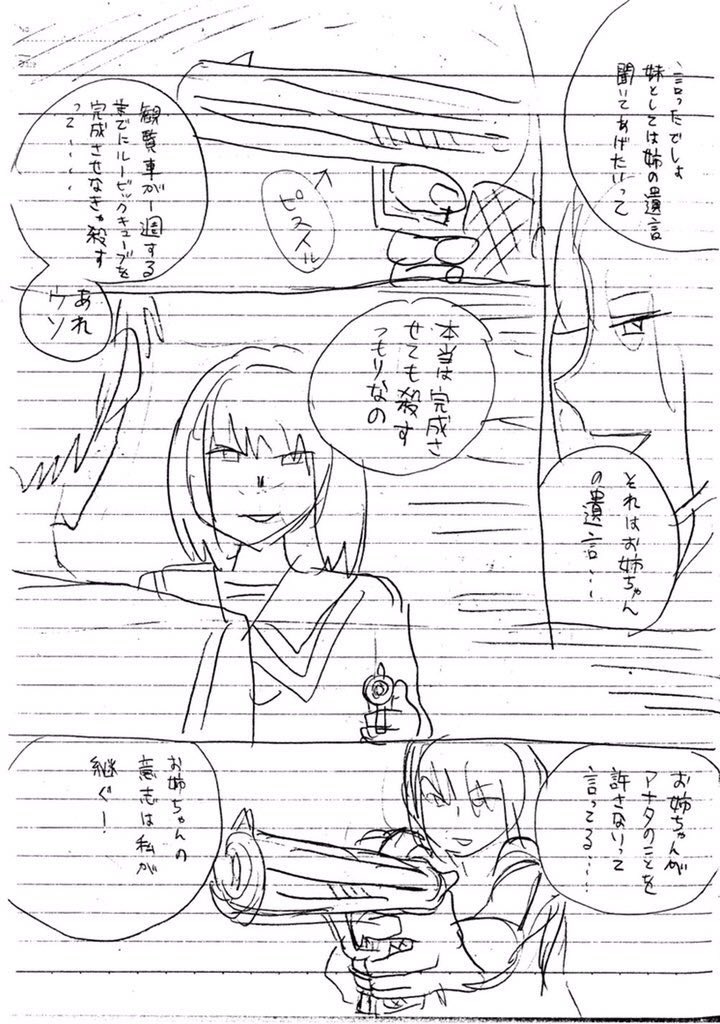 言ったでしょ
妹としては姉の遺言
聞いてあげたいって
それはお姉ちゃん
の遺言・・・
観覧車が一週する
までにルービックキューブを
完成させなきゃ殺す
って・・・・
ピストル
あれ
ウソ
本当は完成さ
せても殺す
つもりなの
お姉ちゃんが
アナタのことを
許さないって
言ってる・・・・
お姉ちゃんの
意志は私が
継ぐ!